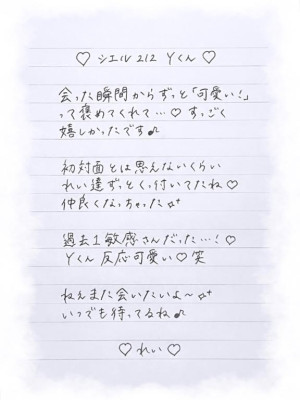 ♡ シエル212 Yくん ♡
会った瞬間からずっと「可愛い!」
って褒めてくれて…♡ すっごく
嬉しかったです♪
初対面とは思えないくらい
れい達ずっとくっ付いてたね♡
仲良くなっちゃった
過去1敏感さんだった…!♡
Yくん反応可愛い♡笑
ねぇまた会いたいよ〜
いつでも待ってるね♪
♡ れい ♡